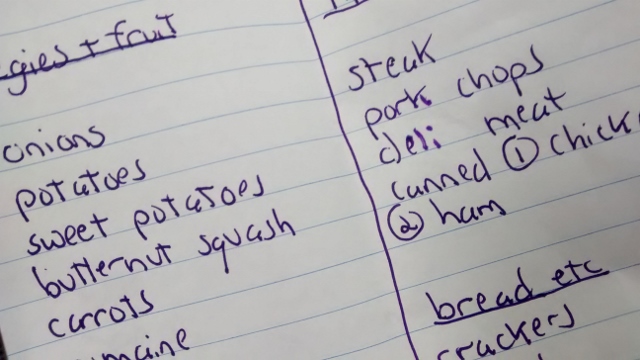 gies + fruit
onions
potatoes
sweet potatoes
butternut squash
carrots
maine
steak
pork chops
deli meat
canned ① chick
② ham
bread etc
crackers